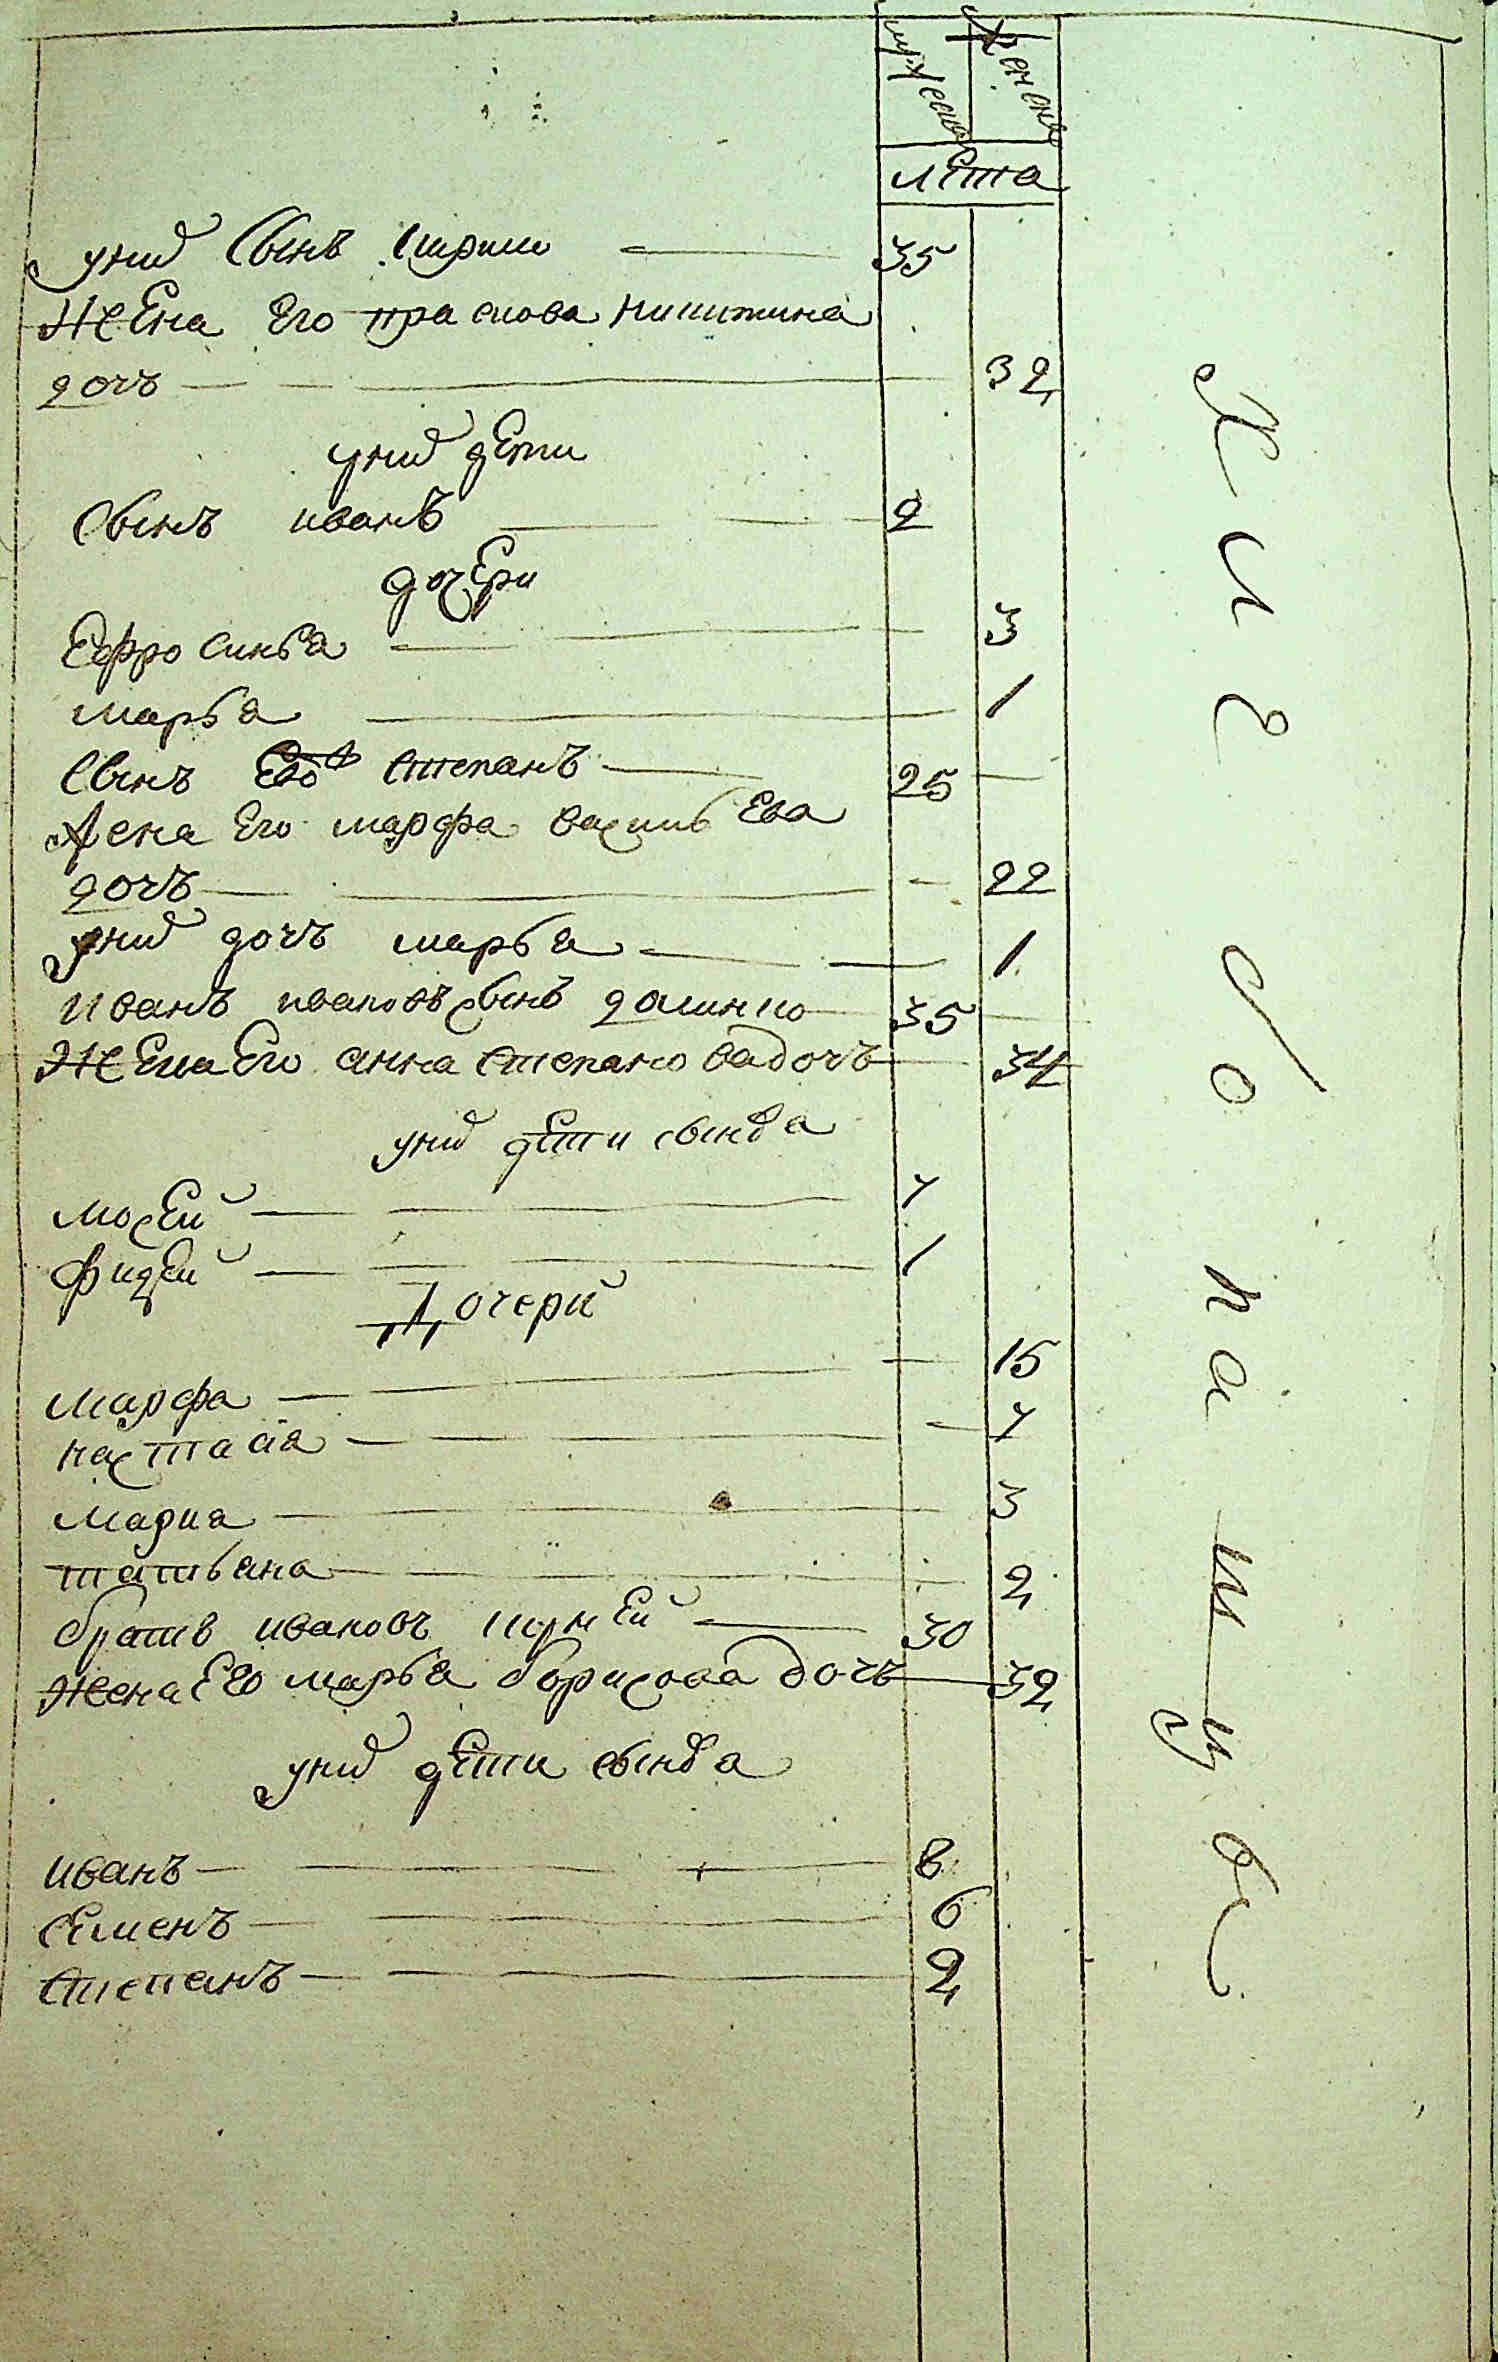 мужеска женска
лѣта
у нихъ сынъ кирило 35
жена его прасковья никитина
дочь 32
у нихъ дети
сынъ иванъ 2
дочери
Ефросинья 3
марья 1
сынъ его степанъ 25
жена его марфа васильева
дочь 22
у нихъ дочь марья 1
иванъ ивановъ сынъ 35
жена его анна степанова дочь 34
у нихъ дети сыновья
мосей 7
фидей 1
Дочери
марфа 15
настася 7
мариа 3
татьяна 2
братъ ивановъ 30
жена его марья борисова дочь 32
у нихъ дети сыновья
иванъ 8
семенъ 6
степанъ 2
Хлебопашцы